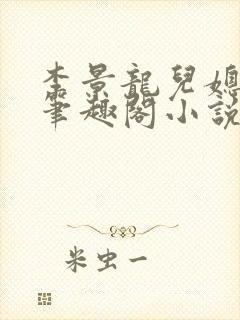 李景龍兒媳
筆趣閣小說
米虫一